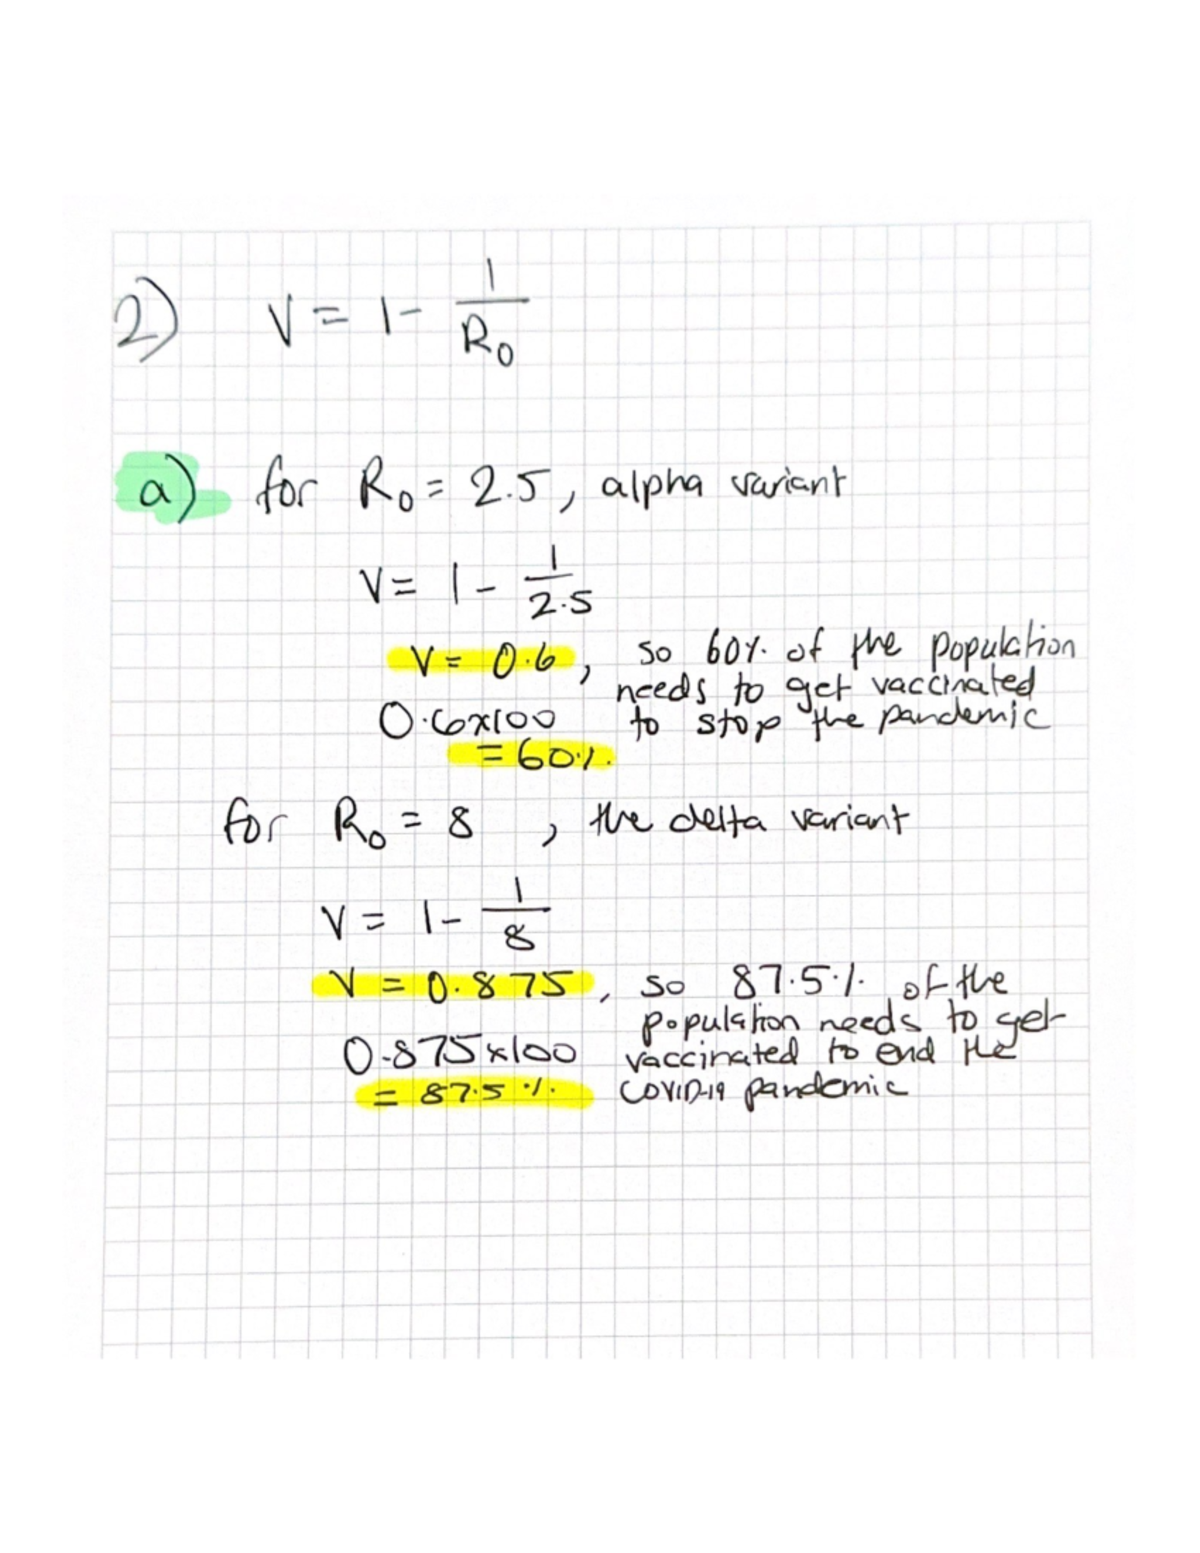 2) V = 1 - 1/R₀
a) for R₀ = 2.5, alpha variant
V = 1 - 1/2.5
V = 0.6, so 60% of the population
needs to get vaccinated
0.6x100 to stop the pandemic
= 60%.
for R₀ = 8 , the delta variant
V = 1 - 1/8
V = 0.875, so 87.5% of the
population needs to get
0.875x100 vaccinated to end the
= 87.5 % COVID-19 pandemic